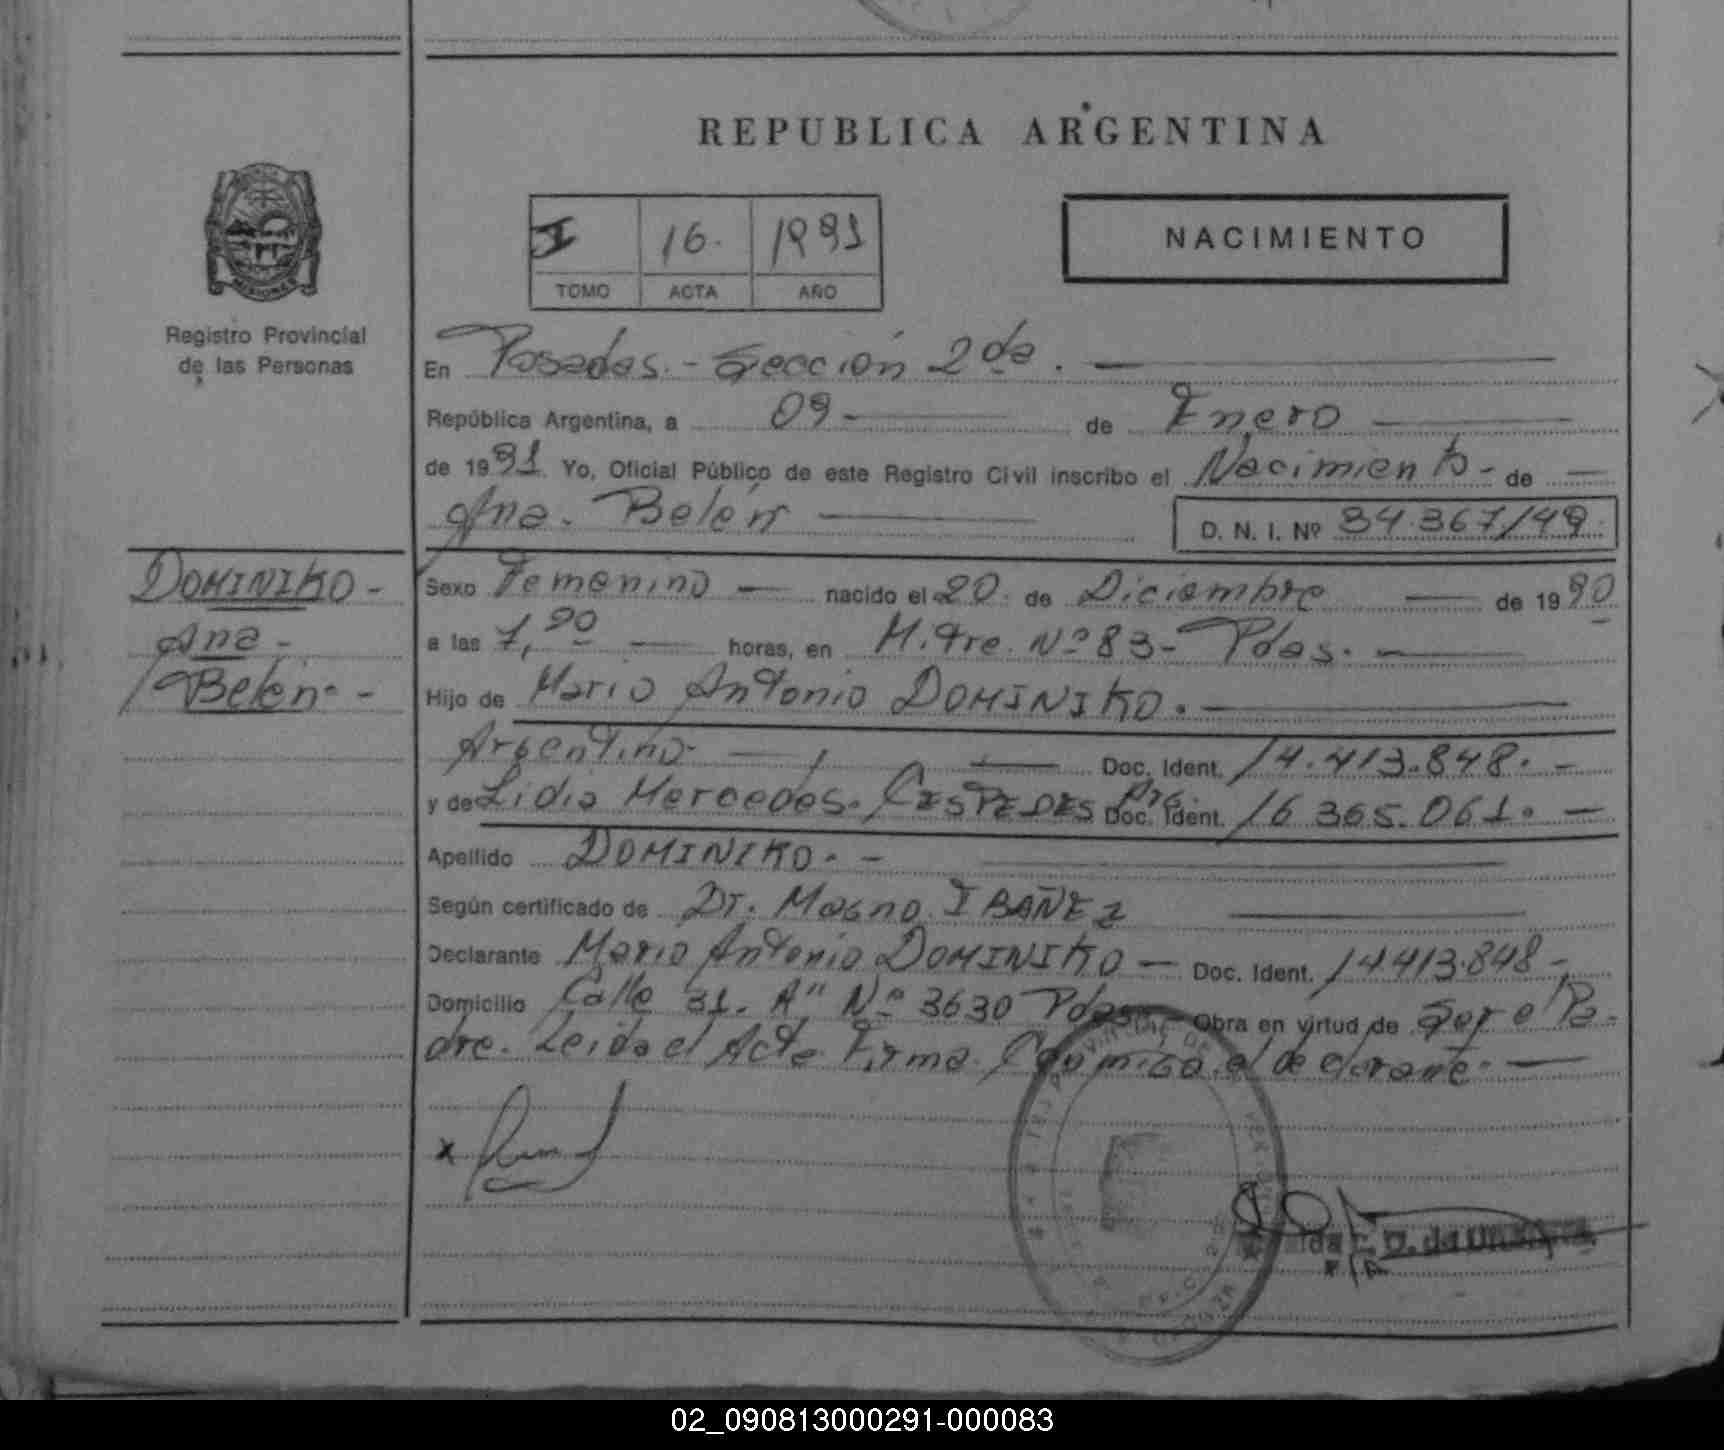 REPUBLICA ARGENTINA
I 16. 1991
TOMO ACTA AÑO
NACIMIENTO
MISIONES
Registro Provincial
de las Personas
En Posadas.- Sección 2da.
República Argentina, a 09 de Enero
de 1991 Yo, Oficial Público de este Registro Civil inscribo el Nacimiento- de
Ana. Belén
D. N. I. Nº 34.367/49.
DOMINIKO-
Ana-
Belén.-
Sexo Femenino nacido el 20. de Diciembre de 1990
a las horas, en M.Fre. Nº 83- Pdas.
Hijo de Mario Antonio DOMINIKO.
Argentino- Doc. Ident. 14.413.848.-
y de Lidia Mercedes. CESPEDES Arg. Doc. Ident. 16 365.061.-
Apellido DOMINIKO.-
Según certificado de Dr. Magno. IBAÑEZ
Declarante Mario Antonio DOMINIKO- Doc. Ident. 14413.848-
Domicilio Calle 31. A" Nº 3630 Pdas. Obra en virtud de Ser el Pa-
dre. Leida el Acta Firma Conmigo el declarante.
x
02_090813000291-000083